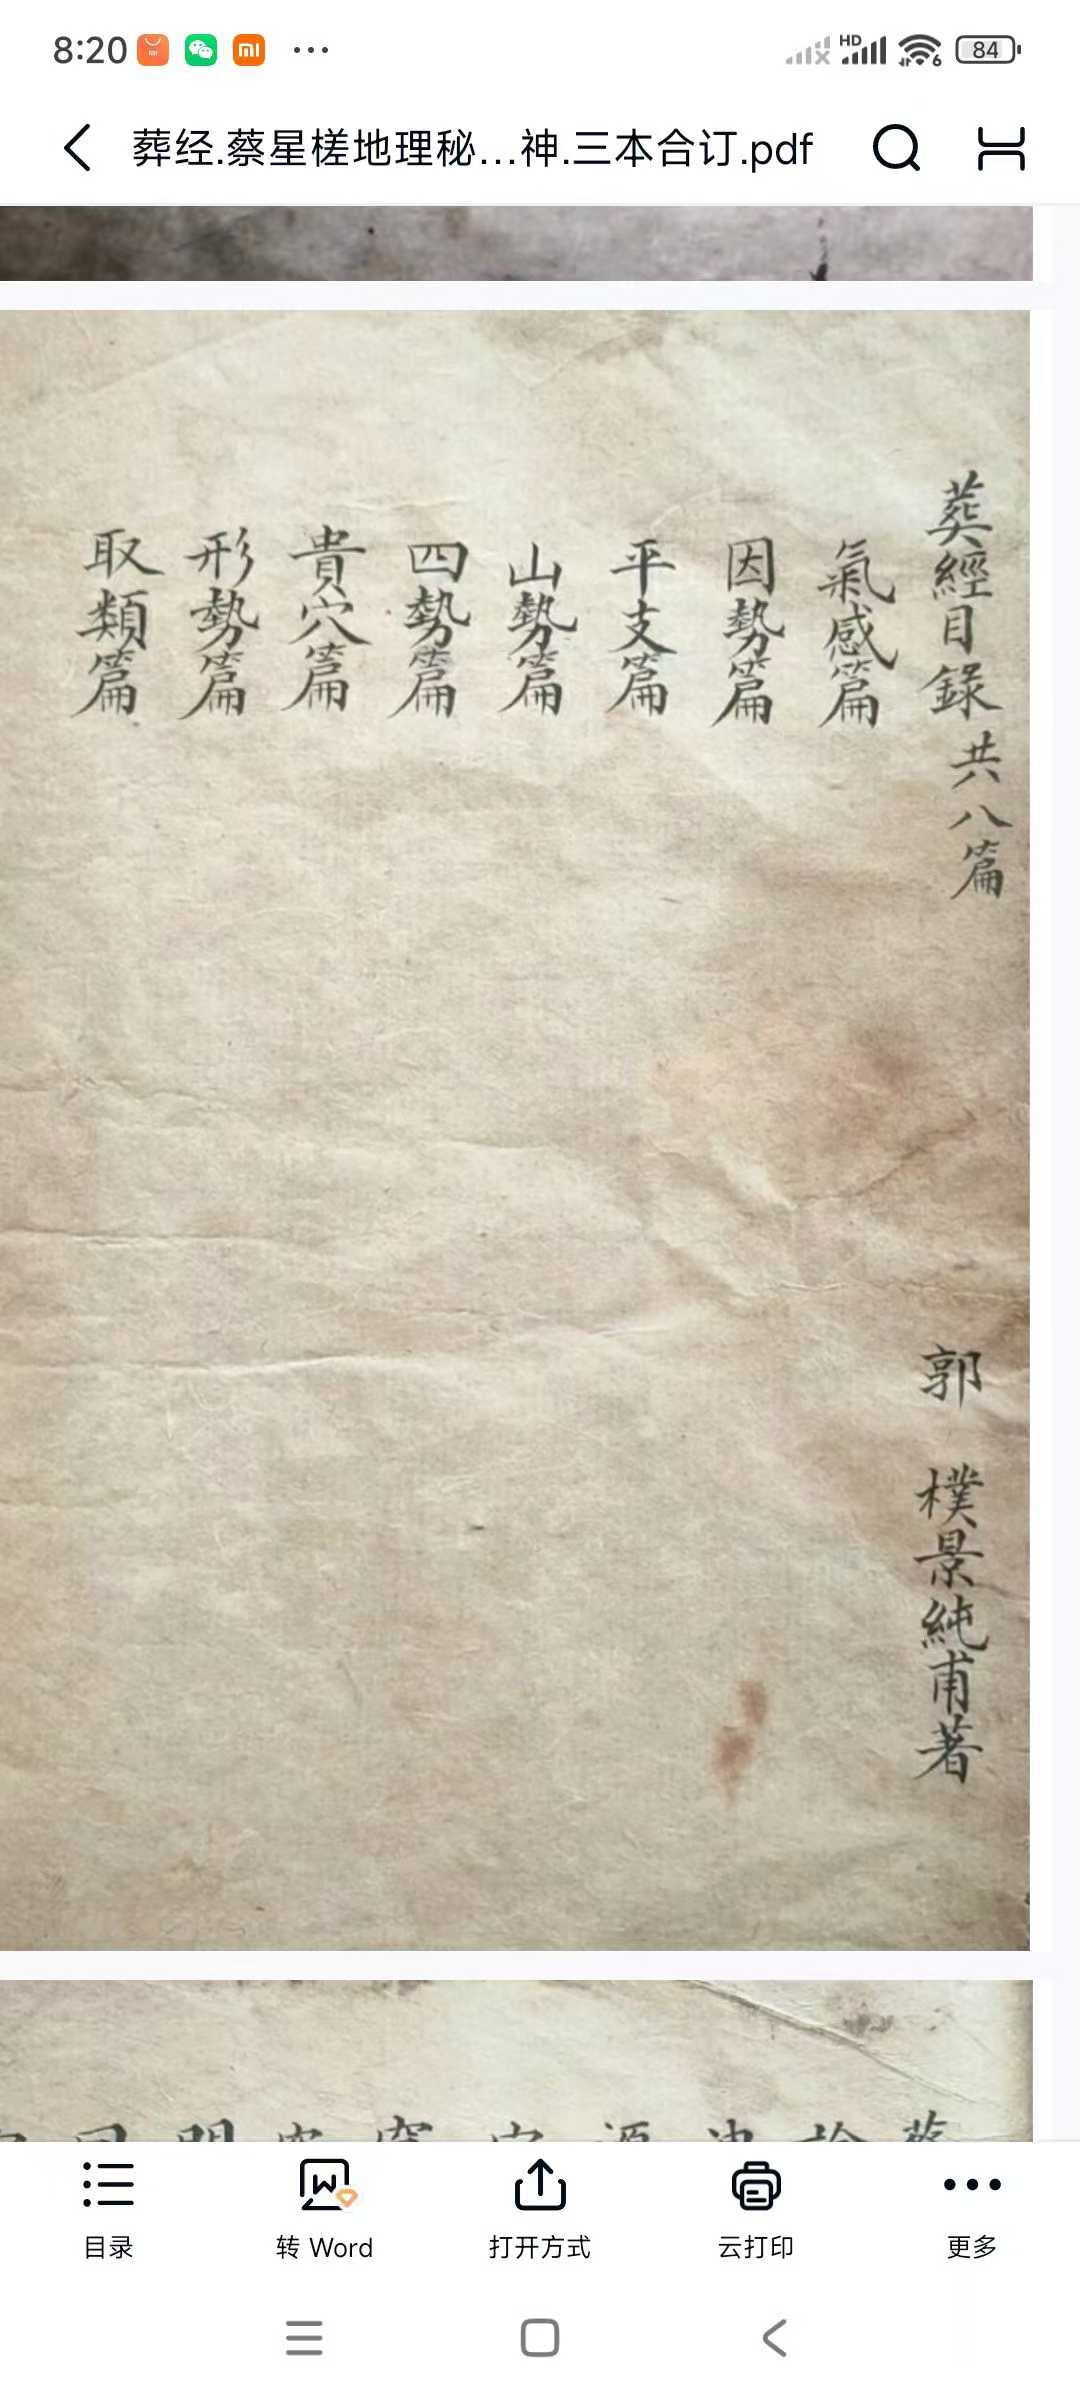 8:20
HD
6
84
葬经.蔡星槎地理秘...神.三本合订.pdf
葬經目錄共八篇
郭 樸景純甫著
氣感篇
因勢篇
平支篇
山勢篇
四勢篇
貴穴篇
形勢篇
取類篇
目录
转 Word
打开方式
云打印
更多